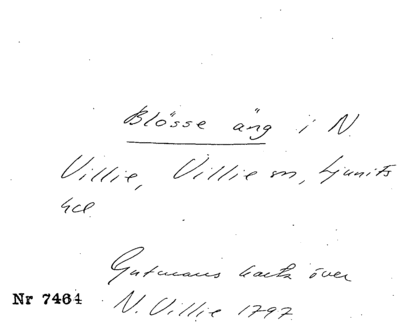 Blösse äng i N.
Villie, Villie sn, Ljunits
hd.
Gutmans karta över
Nr 7464 N. Villie 1797